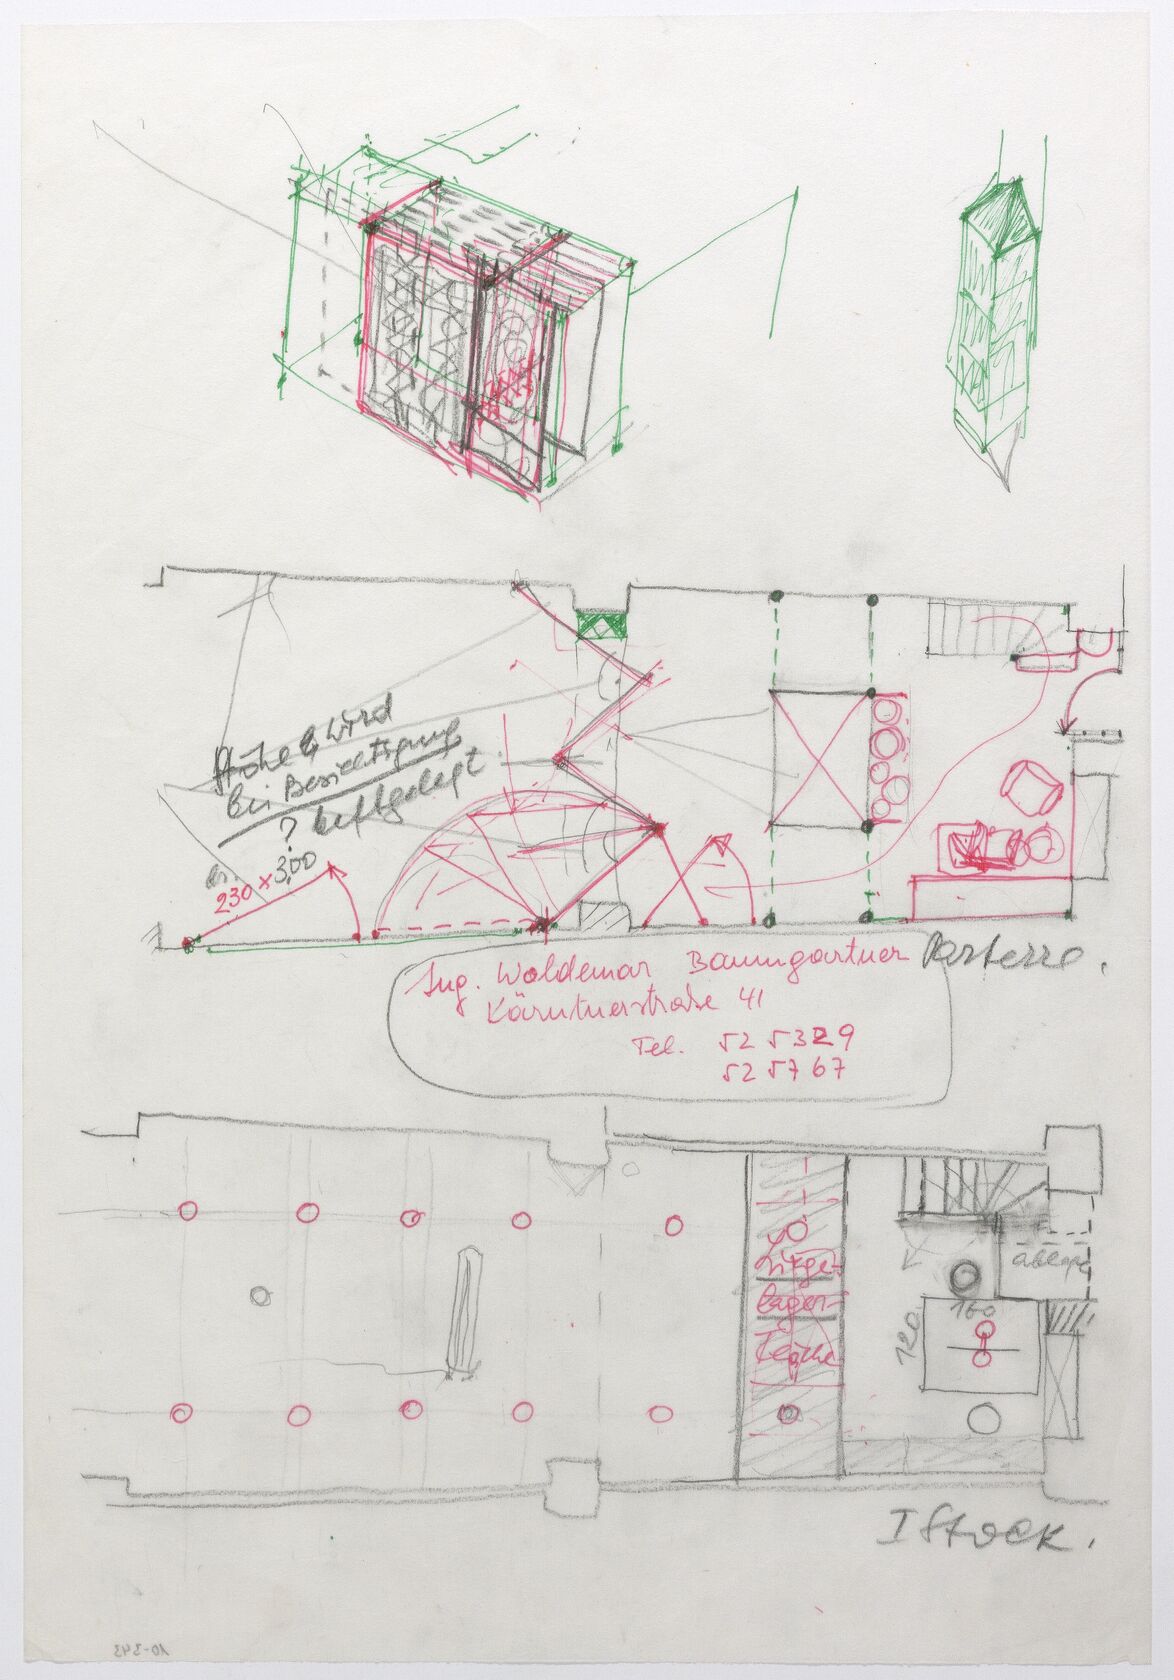 Höhe wird
bei Besichtigung
? festgelegt
ca.
230 x 3,00
Ing. Woldemar Baumgartner
Kärntnerstraße 41
Tel. 52 53 29
52 57 67
Parterre.
lager-
120
160
I Stock.
10-343